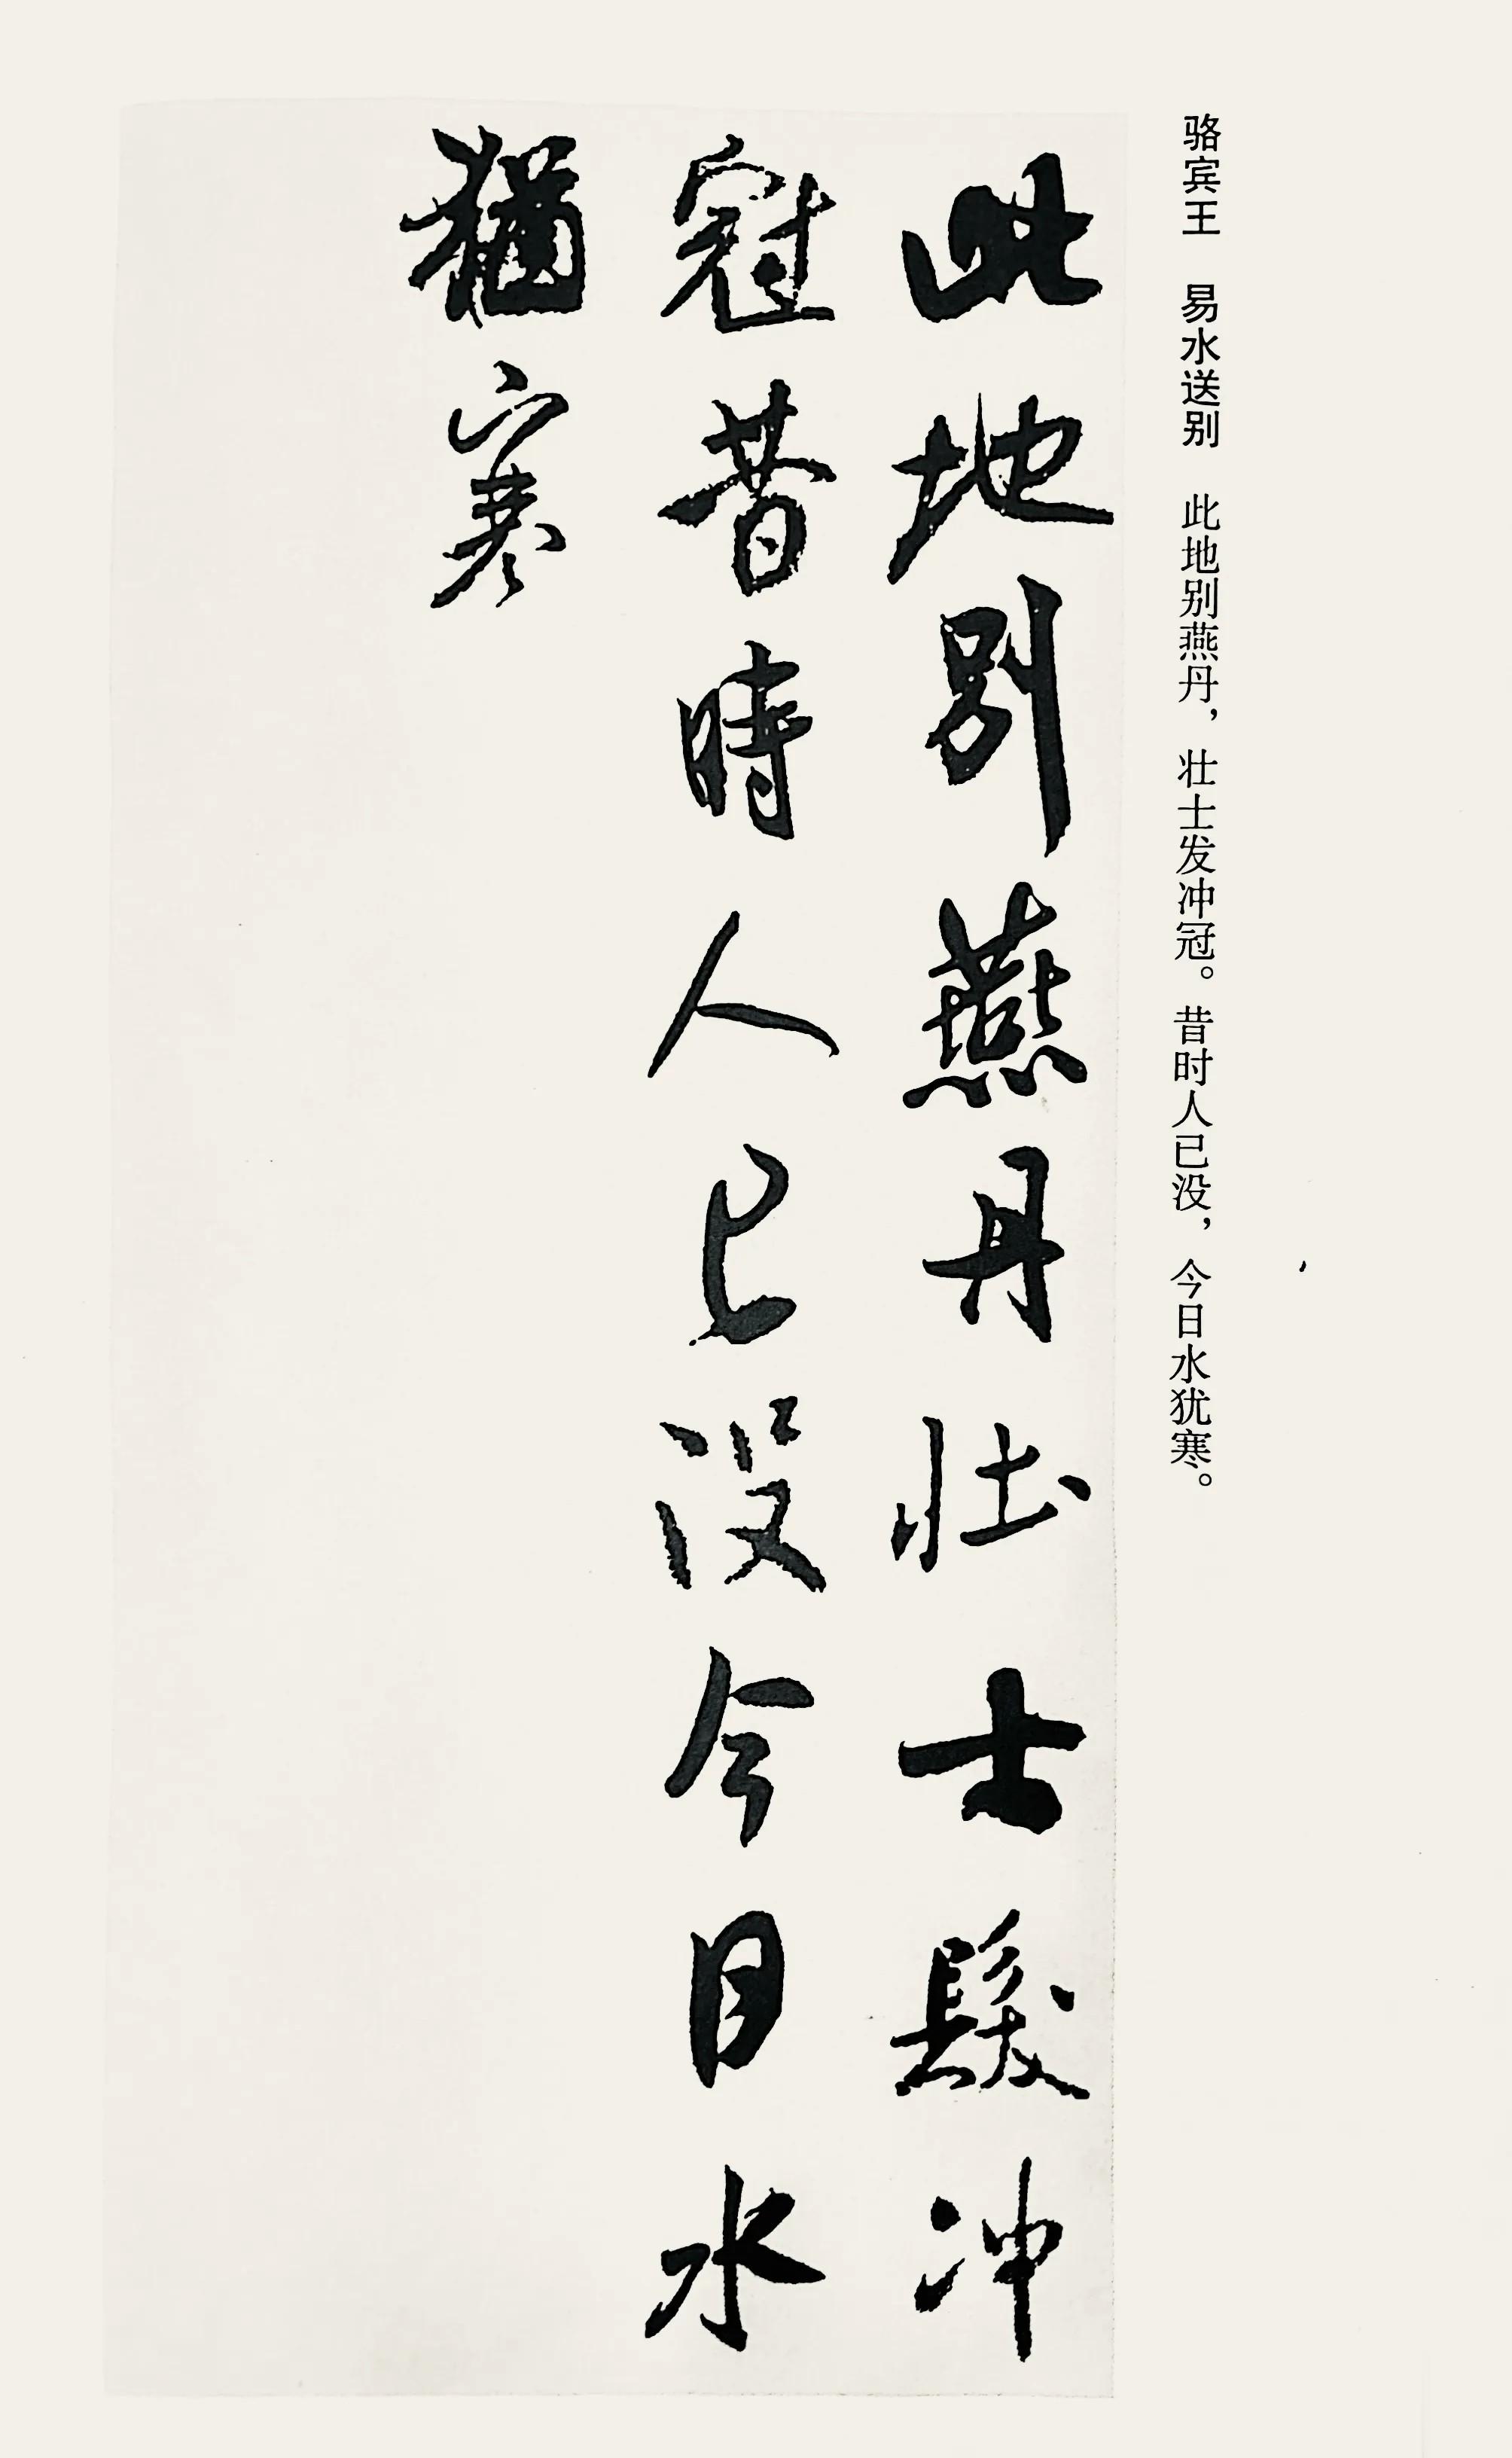 骆宾王　易水送别　此地别燕丹，壮士发冲冠。昔时人已没，今日水犹寒。
此地別燕丹壮士髮冲
冠昔時人已没今日水
猶寒